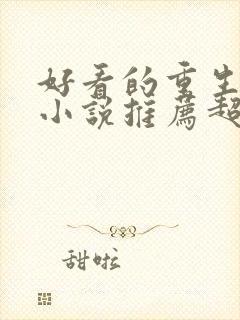 好看的重生
小说推薦超
甜啦